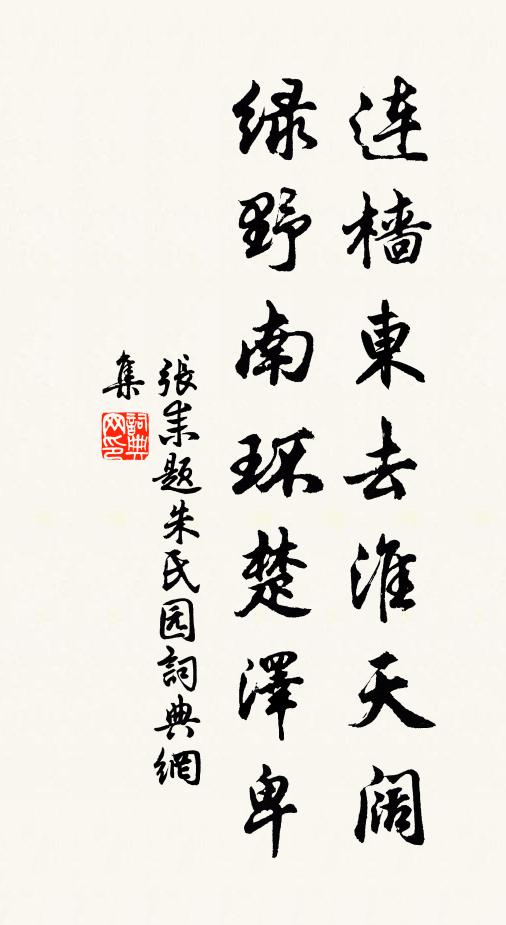 连樯東去淮天阔
绿野南环楚澤卑
張耒题朱氏园詞典網
集
詞典网印